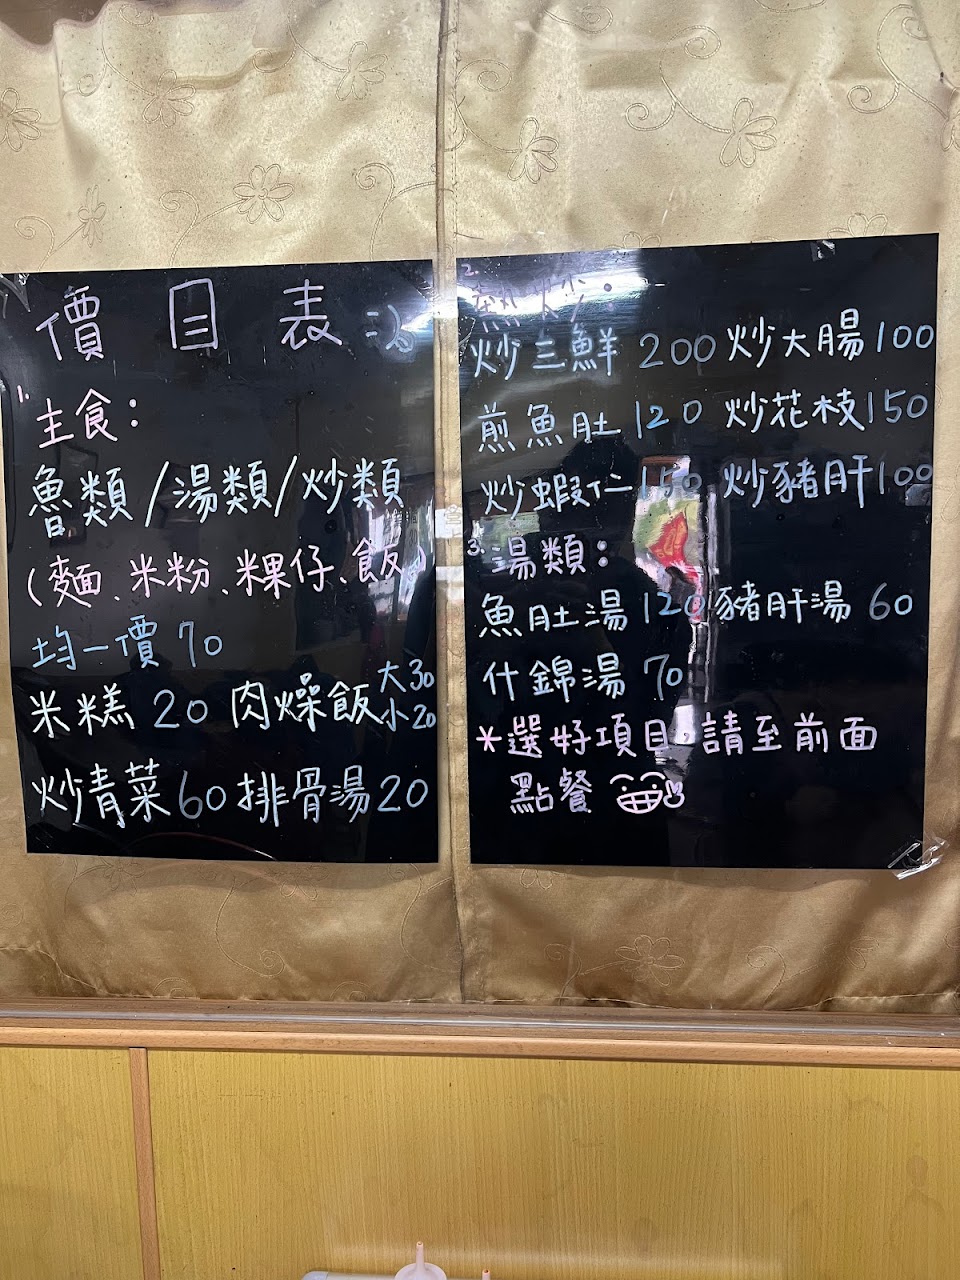 價目表
1.主食:
魯類/湯類/炒類
(麵、米粉、粿仔、飯)
均一價70
米糕 20 肉燥飯 大30 小20
炒青菜60 排骨湯20
2.熱炒:
炒三鮮 200 炒大腸100
煎魚肚120 炒花枝150
炒蝦仁150 炒豬肝100
3.湯類:
魚肚湯 120 豬肝湯 60
什錦湯 70
*選好項目,請至前面
點餐